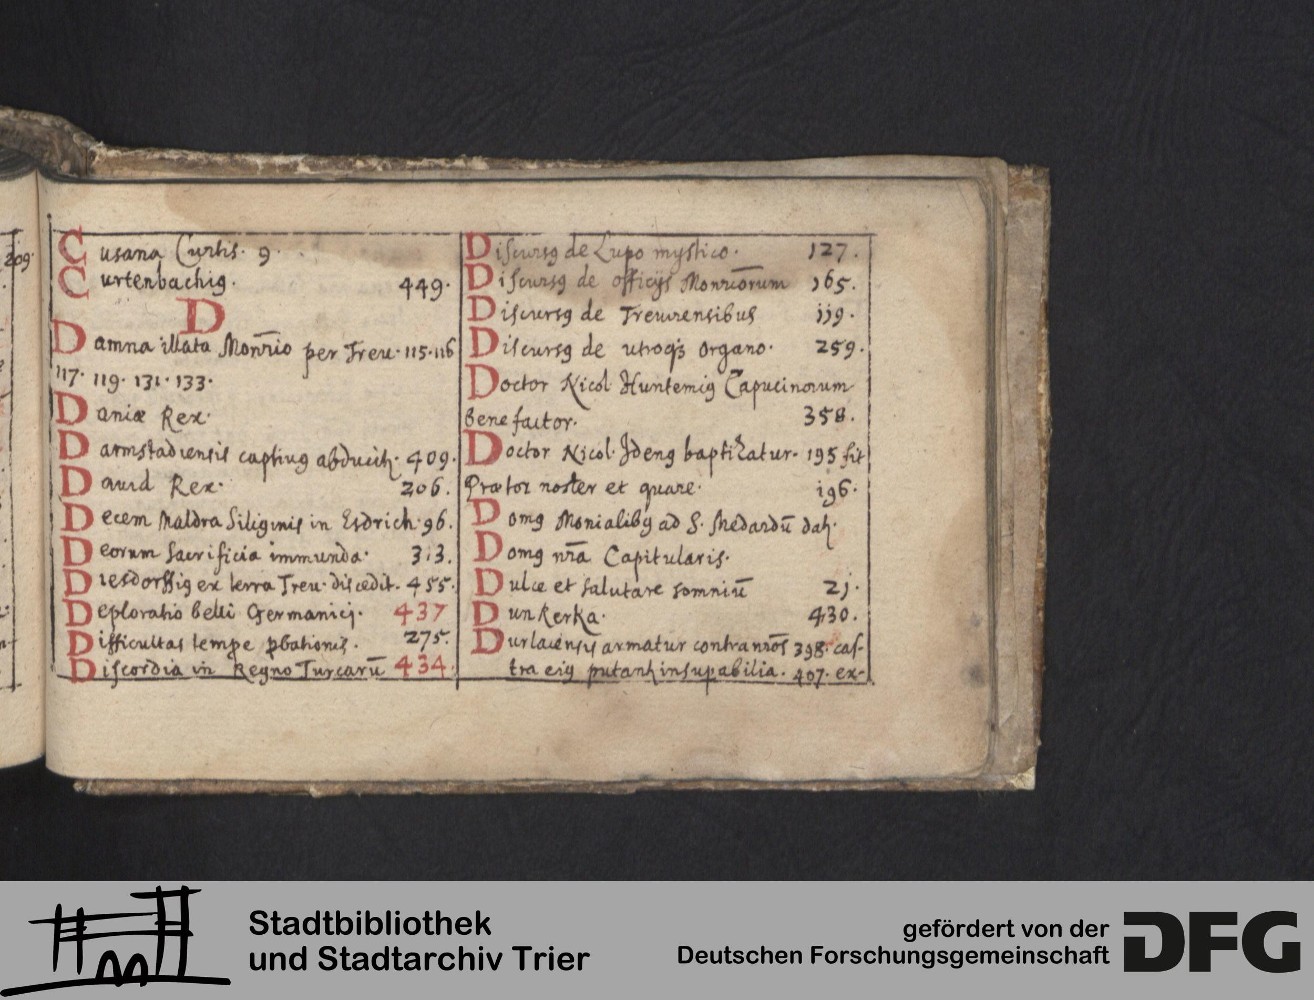 209.
Cusana Curtis. 9.
Curtenbachiꝰ. 449.
D
Damna illata Monrio per Treu. 115. 116
117. 119. 131. 133.
Daniæ Rex.
Darmstadiensis captiuꝰ 409.
Dauid Rex. 206.
Decem Maldra siliginis in Esdrich. 96.
Deorum sacrificia immunda. 313.
Diesdorffiꝰ ex terra Treu. discedit. 455.
Deploratio belli Germanici. 437
Difficultas tempe pbationis. 275.
Discordia in Regno Turcarū 434.
Discursꝰ de Lupo mystico. 127.
Discursꝰ de officijs Monriorum 165.
Discursꝰ de Treuirensibus 119.
Discursꝰ de utroqꝫ organo. 259.
Doctor Nicol Huntemiꝰ Capucinorum
benefactor. 358.
Doctor Nicol. baptizatur. 195 fit
Prætor noster et quare. 196.
Domꝰ Monialibꝰ ad S. Medardū
Domꝰ nrā Capitularis.
Dulce et salutare somniū 21.
Dunkerka. 430.
Durlacensis armatur contra nrōs 398. cas-
tra eiꝰ putant insupabilia. 407. ex-
Stadtbibliothek
und Stadtarchiv Trier
gefördert von der
Deutschen Forschungsgemeinschaft
DFG